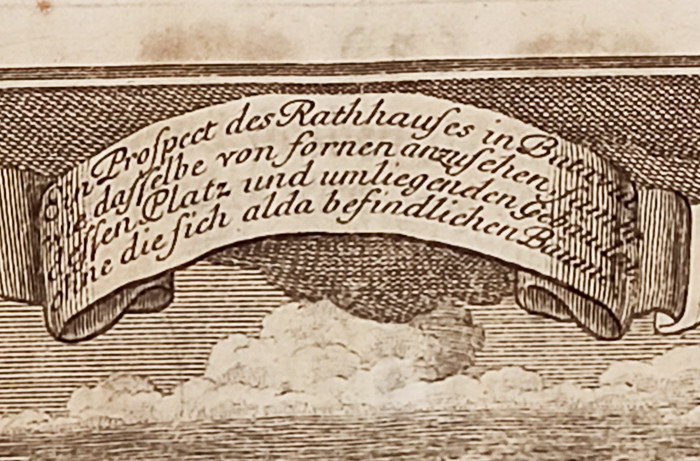 Ein Prospect des Rathhauſes in Batavia
wie daſſelbe von fornen anzuſehen, ſambt
deſſen Platz und umliegenden Gebäuden
ohne die ſich alda befindlichen Bäume.